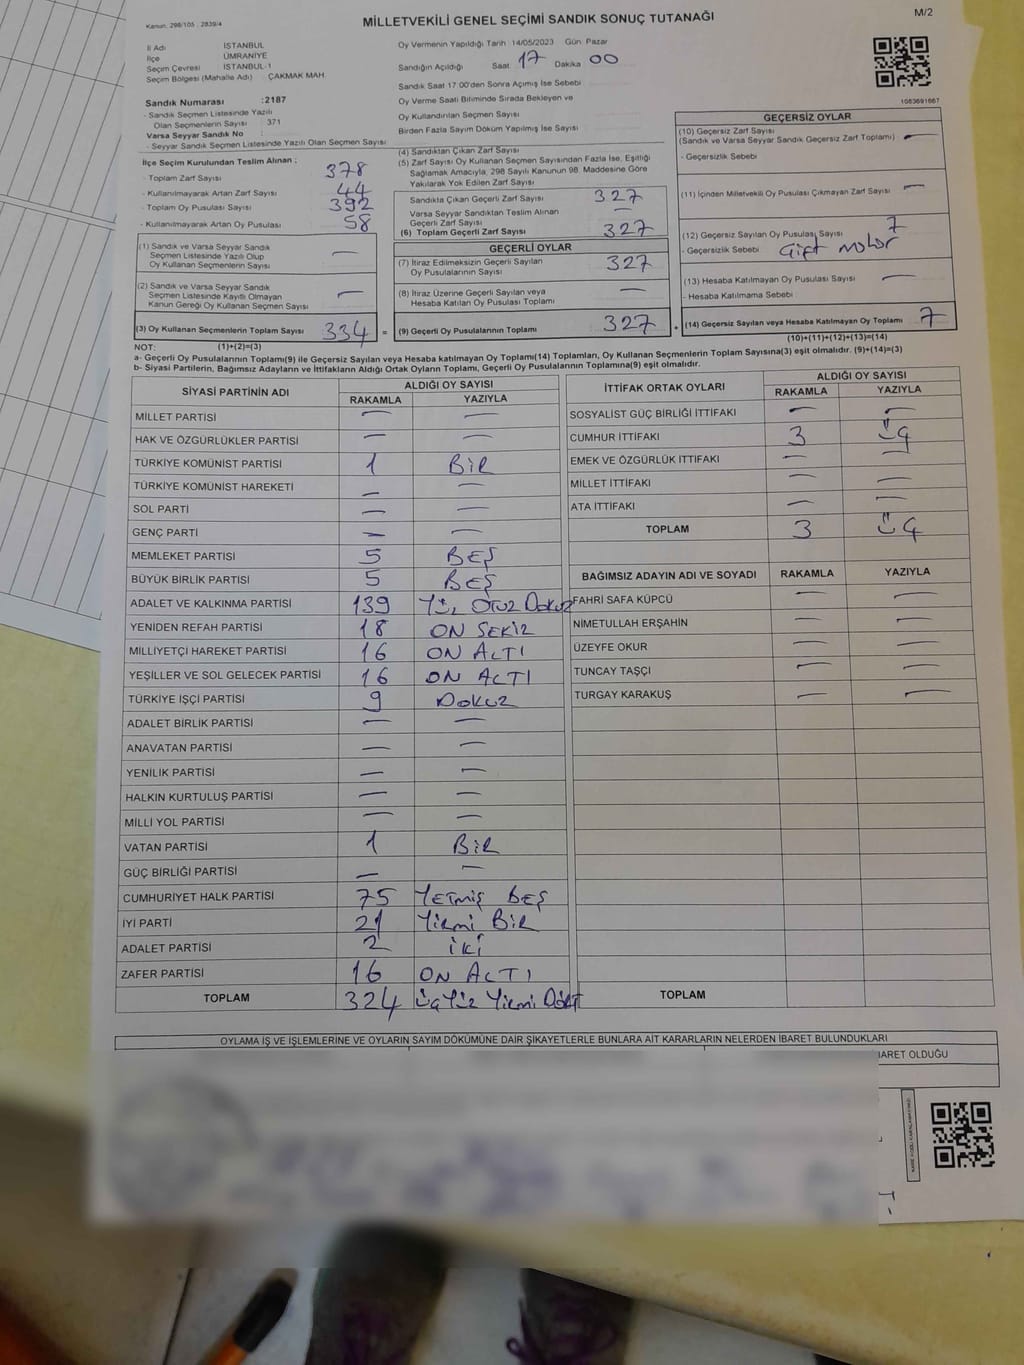 Kanun, 298/105 ; 2839/4
MİLLETVEKİLİ GENEL SEÇİMİ SANDIK SONUÇ TUTANAĞI
M/2
İl Adı İSTANBUL
İlçe ÜMRANİYE
Seçim Çevresi İSTANBUL-1
Seçim Bölgesi (Mahalle Adı) ÇAKMAK MAH.
Sandık Numarası :2187
- Sandık Seçmen Listesinde Yazılı
Olan Seçmenlerin Sayısı : 371
Varsa Seyyar Sandık No :
- Seyyar Sandık Seçmen Listesinde Yazılı Olan Seçmen Sayısı
Oy Vermenin Yapıldığı Tarih 14/05/2023 Gün Pazar
Sandığın Açıldığı Saat 17 Dakika 00
Sandık Saat 17.00'den Sonra Açımış İse Sebebi
Oy Verme Saati Bitiminde Sırada Bekleyen ve
Oy Kullandırılan Seçmen Sayısı
Birden Fazla Sayım Döküm Yapılmış İse Sayısı
1083691667
İlçe Seçim Kurulundan Teslim Alınan ;
- Toplam Zarf Sayısı 378
- Kullanılmayarak Artan Zarf Sayısı 44
- Toplam Oy Pusulası Sayısı 392
- Kullanılmayarak Artan Oy Pusulası 58
(1) Sandık ve Varsa Seyyar Sandık
Seçmen Listesinde Yazılı Olup
Oy Kullanan Seçmenlerin Sayısı —
(2) Sandık ve Varsa Seyyar Sandık
Seçmen Listesinde Kayıtlı Olmayan
Kanun Gereği Oy Kullanan Seçmen Sayısı —
(3) Oy Kullanan Seçmenlerin Toplam Sayısı 334 =
(4) Sandıktan Çıkan Zarf Sayısı
(5) Zarf Sayısı Oy Kullanan Seçmen Sayısından Fazla İse, Eşitliği
Sağlamak Amacıyla, 298 Sayılı Kanunun 98. Maddesine Göre
Yakılarak Yok Edilen Zarf Sayısı
Sandıkta Çıkan Geçerli Zarf Sayısı 327
Varsa Seyyar Sandıktan Teslim Alınan
Geçerli Zarf Sayısı —
(6) Toplam Geçerli Zarf Sayısı 327
GEÇERLİ OYLAR
(7) İtiraz Edilmeksizin Geçerli Sayılan
Oy Pusulalarının Sayısı 327
(8) İtiraz Üzerine Geçerli Sayılan veya
Hesaba Katılan Oy Pusulası Toplamı —
(9) Geçerli Oy Pusulalarının Toplamı 327 +
GEÇERSİZ OYLAR
(10) Geçersiz Zarf Sayısı
(Sandık ve Varsa Seyyar Sandık Geçersiz Zarf Toplamı) —
- Geçersizlik Sebebi
(11) İçinden Milletvekili Oy Pusulası Çıkmayan Zarf Sayısı —
(12) Geçersiz Sayılan Oy Pusulası Sayısı 7
- Geçersizlik Sebebi Çift mühür
(13) Hesaba Katılmayan Oy Pusulası Sayısı —
- Hesaba Katılmama Sebebi
(14) Geçersiz Sayılan veya Hesaba Katılmayan Oy Toplamı 7
NOT: (1)+(2)=(3)
(10)+(11)+(12)+(13)=(14)
a- Geçerli Oy Pusulalarının Toplamı(9) ile Geçersiz Sayılan veya Hesaba katılmayan Oy Toplamı(14) Toplamları, Oy Kullanan Seçmenlerin Toplam Sayısına(3) eşit olmalıdır. (9)+(14)=(3)
b- Siyasi Partilerin, Bağımsız Adayların ve İttifakların Aldığı Ortak Oyların Toplamı, Geçerli Oy Pusulalarının Toplamına(9) eşit olmalıdır.
SİYASİ PARTİNİN ADI ALDIĞI OY SAYISI
RAKAMLA YAZIYLA
MİLLET PARTİSİ — —
HAK VE ÖZGÜRLÜKLER PARTİSİ — —
TÜRKİYE KOMÜNİST PARTİSİ 1 BİR
TÜRKİYE KOMÜNİST HAREKETİ — —
SOL PARTİ — —
GENÇ PARTİ — —
MEMLEKET PARTİSİ 5 BEŞ
BÜYÜK BİRLİK PARTİSİ 5 BEŞ
ADALET VE KALKINMA PARTİSİ 139 Yüz OTUZ DOKUZ
YENİDEN REFAH PARTİSİ 18 ON SEKİZ
MİLLİYETÇİ HAREKET PARTİSİ 16 ON ALTI
YEŞİLLER VE SOL GELECEK PARTİSİ 16 ON ALTI
TÜRKİYE İŞÇİ PARTİSİ 9 DOKUZ
ADALET BİRLİK PARTİSİ — —
ANAVATAN PARTİSİ — —
YENİLİK PARTİSİ — —
HALKIN KURTULUŞ PARTİSİ — —
MİLLİ YOL PARTİSİ — —
VATAN PARTİSİ 1 BİR
GÜÇ BİRLİĞİ PARTİSİ — —
CUMHURİYET HALK PARTİSİ 75 YETMİŞ BEŞ
İYİ PARTİ 21 YİRMİ BİR
ADALET PARTİSİ 2 İKİ
ZAFER PARTİSİ 16 ON ALTI
TOPLAM 324 ÜÇ YÜZ YİRMİ DÖRT
İTTİFAK ORTAK OYLARI ALDIĞI OY SAYISI
RAKAMLA YAZIYLA
SOSYALİST GÜÇ BİRLİĞİ İTTİFAKI — —
CUMHUR İTTİFAKI 3 ÜÇ
EMEK VE ÖZGÜRLÜK İTTİFAKI — —
MİLLET İTTİFAKI — —
ATA İTTİFAKI — —
TOPLAM 3 ÜÇ
BAĞIMSIZ ADAYIN ADI VE SOYADI RAKAMLA YAZIYLA
FAHRİ SAFA KÜPCÜ — —
NİMETULLAH ERŞAHİN — —
ÜZEYFE OKUR — —
TUNCAY TAŞÇI — —
TURGAY KARAKUŞ — —
TOPLAM
OYLAMA İŞ VE İŞLEMLERİNE VE OYLARIN SAYIM DÖKÜMÜNE DAİR ŞİKAYETLERLE BUNLARA AİT KARARLARIN NELERDEN İBARET BULUNDUKLARI
İBARET OLDUĞU